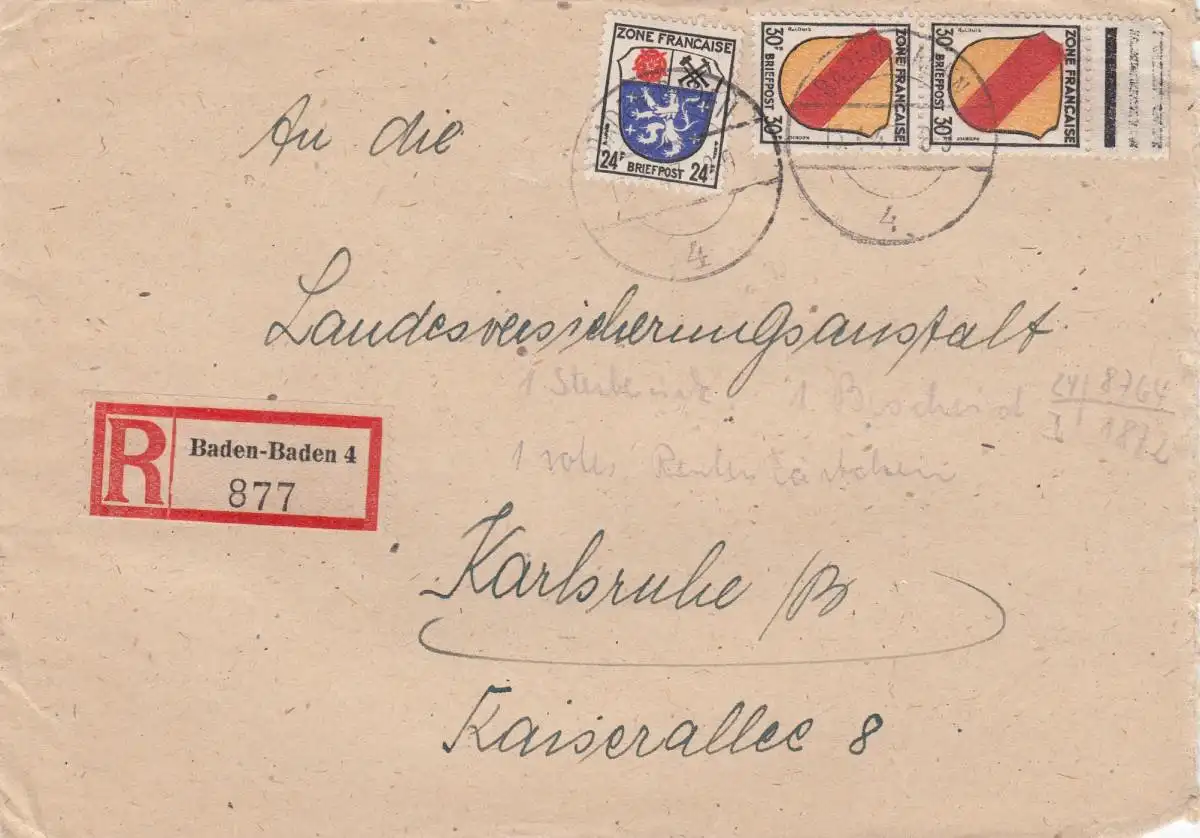 ZONE FRANCAISE
24F BRIEFPOST 24F
30F BRIEFPOST 30F
ZONE FRANCAISE
30F BRIEFPOST 30F
ZONE FRANCAISE
4
4
An die
Landesversicherungsanstalt
1 1 Bescheid 8764
1 Renten
R Baden-Baden 4
877
Karlsruhe /B
Kaiserallee 8